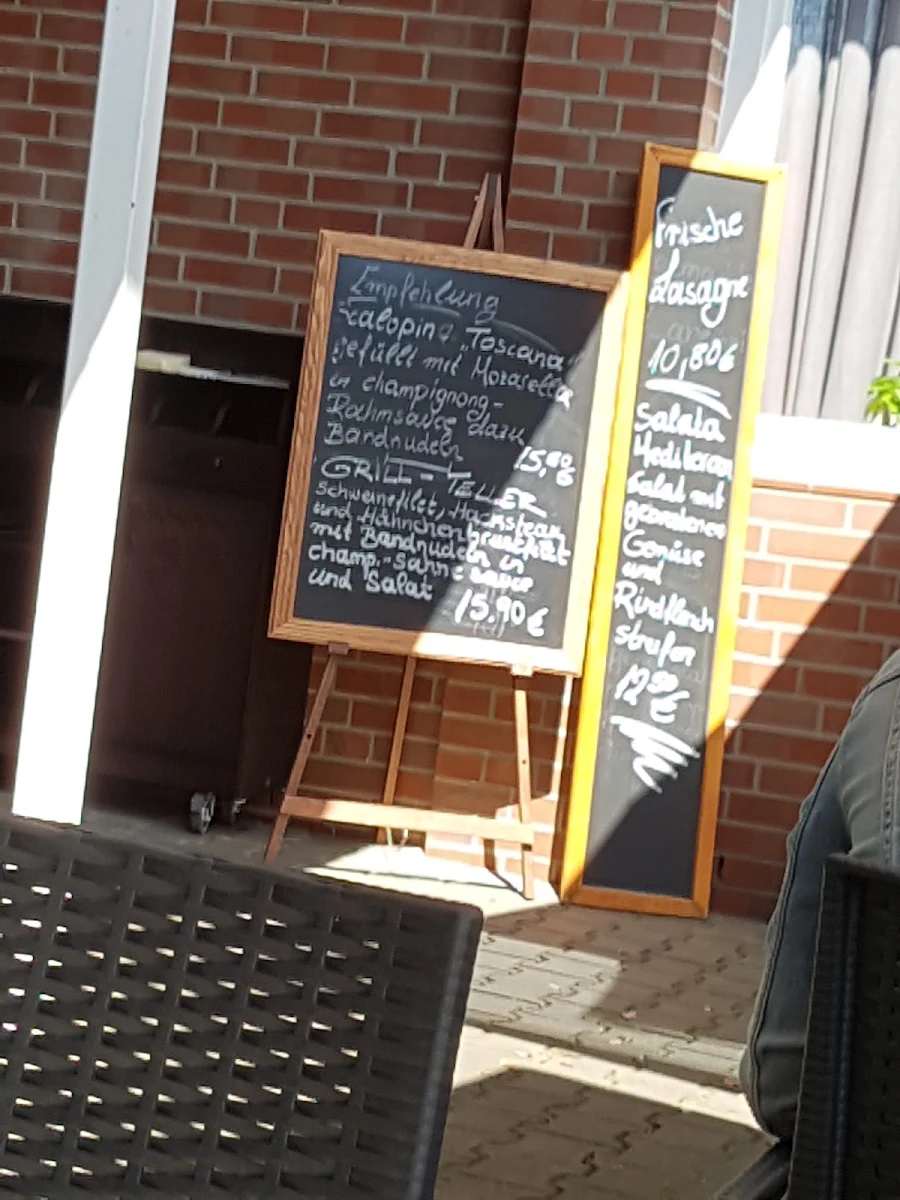 Empfehlung
Scalopina "Toscana"
gefüllt mit Mozarella
in champignong-
Rahmsauce dazu
Bandnudeln 15,80
€
GRILL-TELLER
Schweinefilet, Hacksteak
und Hähnchenbrustfilet
mit Bandnudeln in
champ.-Sahnesauce
und Salat
15.90€
Frische
Lasagne
10,80€
Salata
Mediteran
Salat mit
gebratenen
Gemüse
und
Rindfleisch
streifen
12,50
€